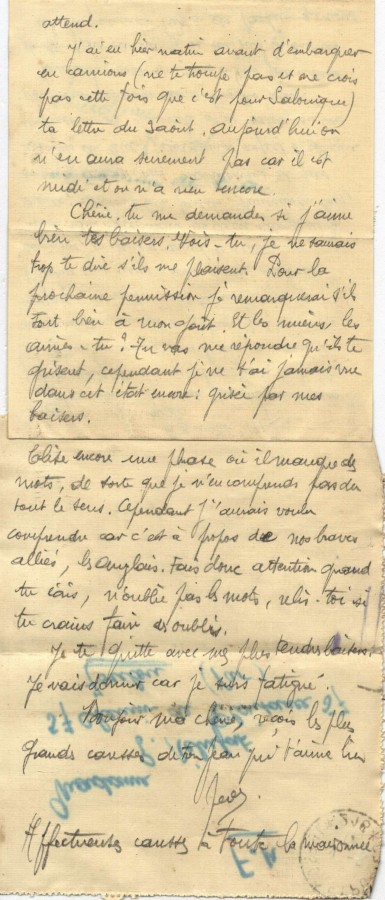 attend.
J'ai eu hier matin avant d'embarquer
en camions (ne te trompe pas et ne crois
pas cette fois que c'est pour Salonique)
ta lettre du 3 août. Aujourd'hui on
n'en aura sûrement pas car il est
midi et on n'a rien encore.
Chérie, tu me demandes si j'aime
bien tes baisers. Vois-tu, je ne saurais
trop te dire s'ils me plaisent. Pour la
prochaine permission je remarquerai s'ils
sont bien à mon goût. Et les miens les
aimes-tu? Tu vas me répondre qu'ils te
grisent, cependant je ne t'ai jamais vue
dans cet état encore: grisée par mes
baisers.
encore une phrase où il manque des
mots, de sorte que je n'en comprends pas du
tout le sens. Cependant j'aurais voulu
comprendre car c'est à propos de nos braves
alliés, les anglais. Fais donc attention quand
tu écris, n'oublie pas les mots, relis-toi si
tu crains faire des oublis.
Je te quitte avec mes plus tendres baisers.
Je vais dormir car je suis fatigué.
Bonjour ma chérie, reçois les plus
grandes caresses de ton Jean qui t'aime bien
Affectueuses caresses à toute la maisonnée.
Madame